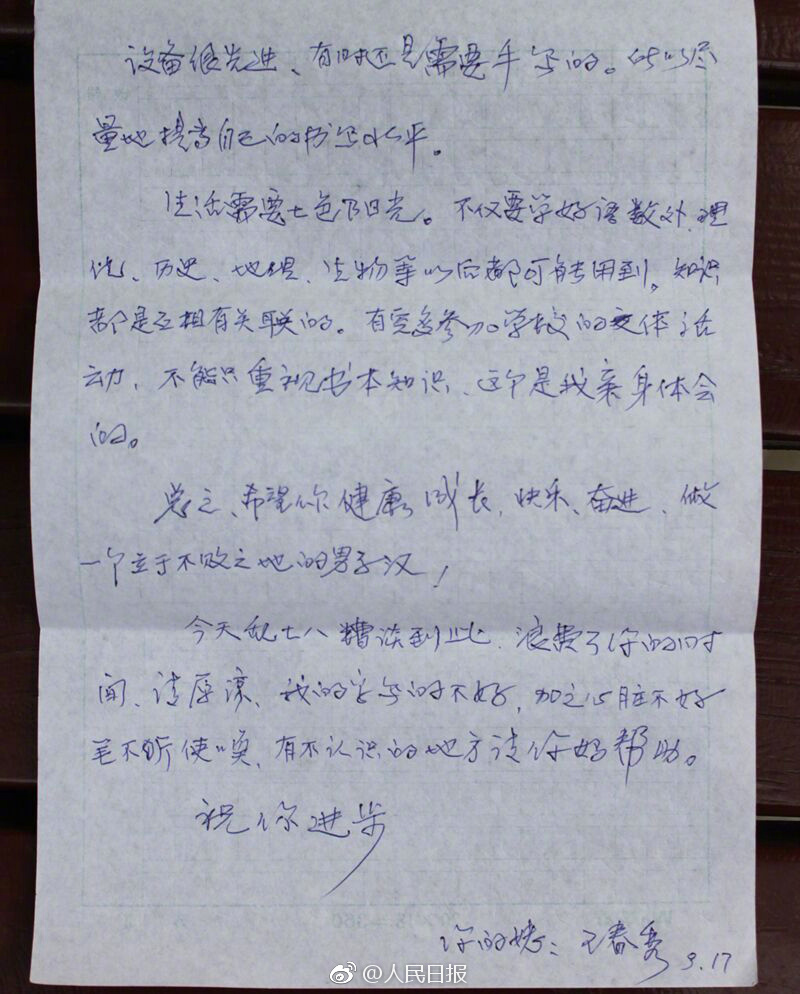 设备很先进、有时还是需要手写的。所以尽
量地提高自己的书写水平。
生活需要七色阳光。不仅要学好语数外、理
化、历史、地理、生物等以后都可能用到。知识
都是互相有关联的。有空多参加学校的文体活
动，不能只重视书本知识、这个是我亲身体会
的。
总之、希望你健康成长，快乐、奋进、做
一个立于不败之地的男子汉！
今天乱七八糟谈到此、浪费了你的时
间、请原谅、我的字写的不好，加之心脏不好
笔不听使唤，有不认识的地方请你妈帮助。
祝你进步
你的姨：王春秀
9.17
@人民日报